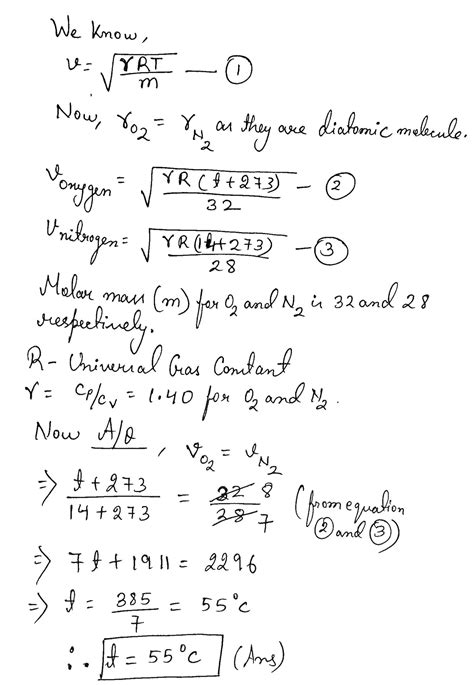 We Know,
v = √(γRT/m) — ①
Now, γO₂ = γN₂ as they are diatomic molecule.
Voxygen = √(γR(t+273)/32) — ②
Vnitrogen = √(γR(14+273)/28) — ③
Molar mass (m) for O₂ and N₂ is 32 and 28
respectively.
R - Universal Gas Constant
γ = CP/CV = 1.40 for O₂ and N₂.
Now A/Q, vO₂ = vN₂
⇒ (t+273)/(14+273) = 32 8/28 7 (from equation
② and ③)
⇒ 7t + 1911 = 2296
⇒ t = 385/7 = 55°C
∴ t = 55°C (Ans)